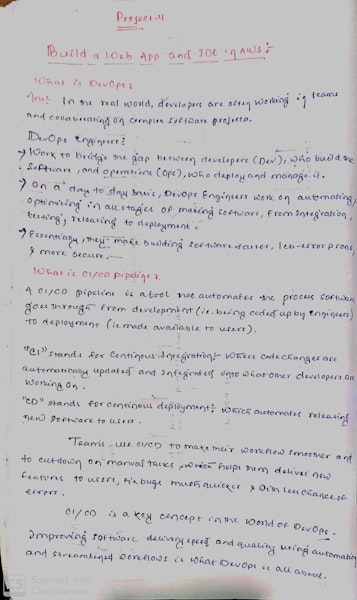 Project-4
Build a Web App and IDE in AWS :-
What is DevOps?
Ans: In the real world, developers are often working in teams
and collaborating on complex software projects.
DevOps Engineer:
→ Work to bridge the gap between developers (Dev), who build the
Software, and operations (Ops), who deploy and manage it.
→ On a day to day basis, DevOps Engineers work on automating,
optimizing in all stages of making software, from integration,
testing, releasing to deployment.
→ Essentially, they make building software faster, less-error prone,
& more secure.
What is CI/CD pipeline?
A CI/CD pipeline is a tool that automates the process software
goes through from development (i.e. being coded up by Engineers)
to deployment (i.e. made available to users).
"CI" stands for Continous Integration:- Where code changes are
automatically updated and Integrated into what other developers are
Working on.
"CD" stands for continous deployment:- Which automates releasing
new software to users.
Teams use CI/CD to make their workflow smoother and
to cut down on manual tasks, which helps them deliver new
features to users, fix bugs much quicker & with less chance of
errors.
CI/CD is a key concept in the world of DevOps.
Improving software delivery speed and quality using automation
and streamlined workflows is what DevOps is all about.
CS Scanned with
CamScanner